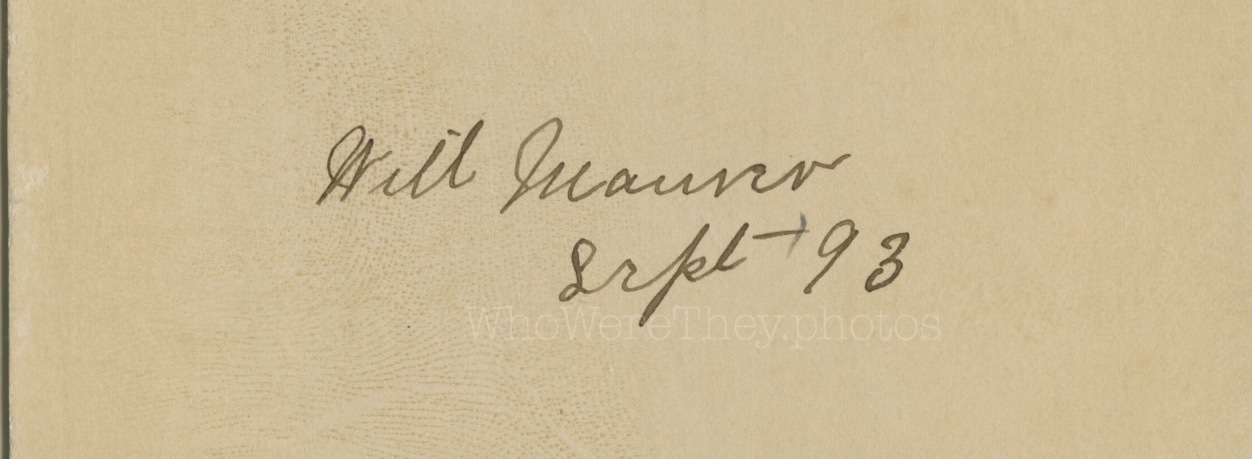 Will Maurer
Sept - 93
WhoWereThey.photos